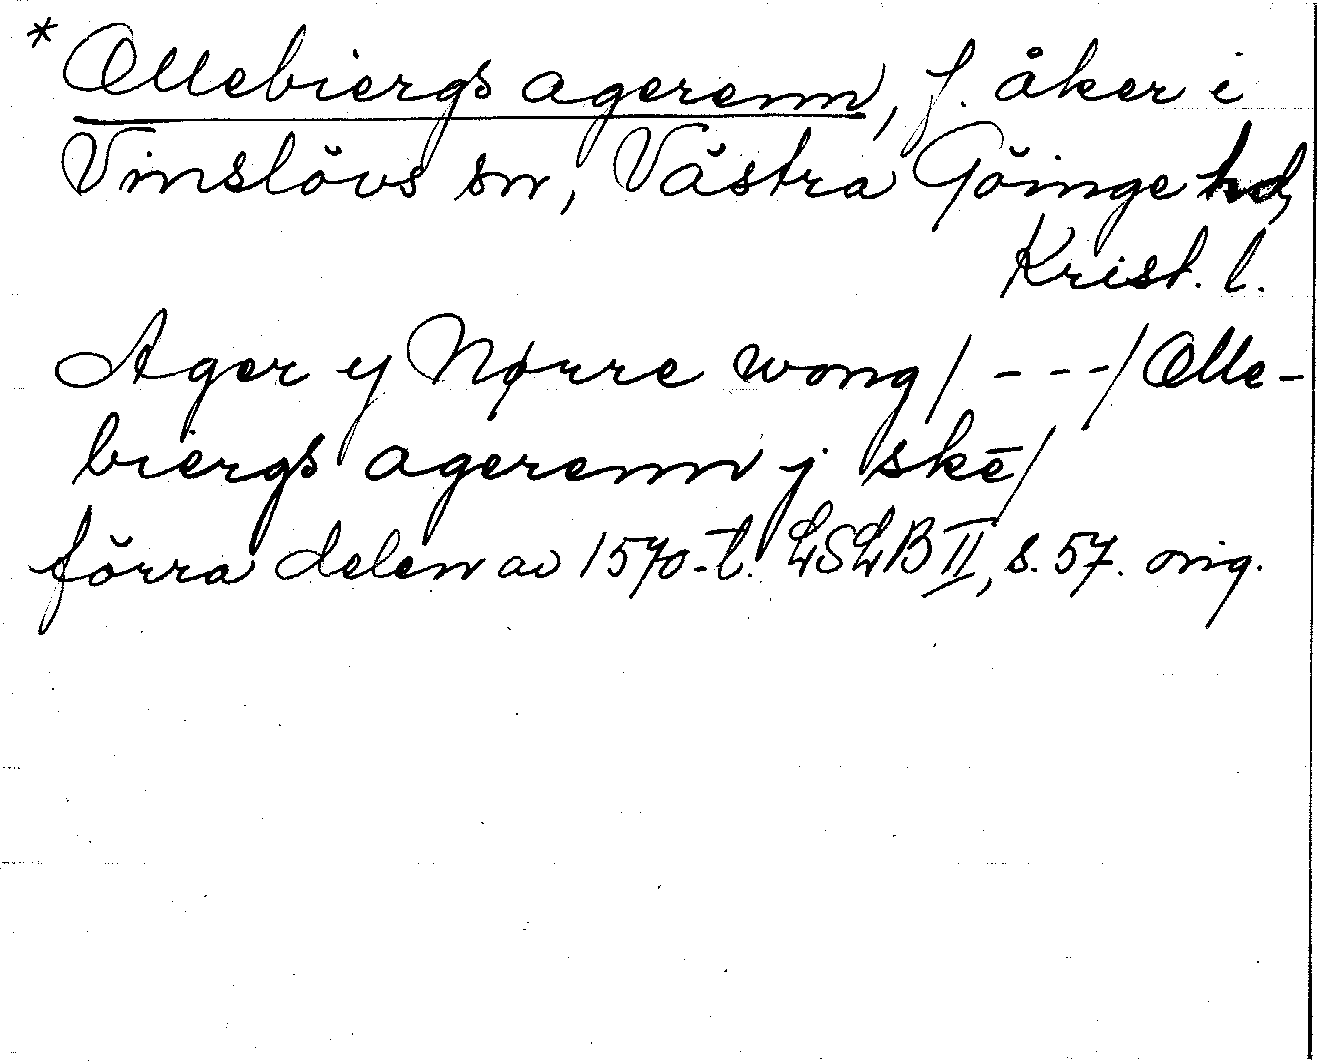 * Ollebiergs agerenn, f. åker i
Vinslövs sn, Västra Göinge hd,
Krist. l.
Ager y Nørre wong / - - - / Olle-
biergs agerenn j skē /
förra delen av 1570-t. LSLB II, s. 57. orig.